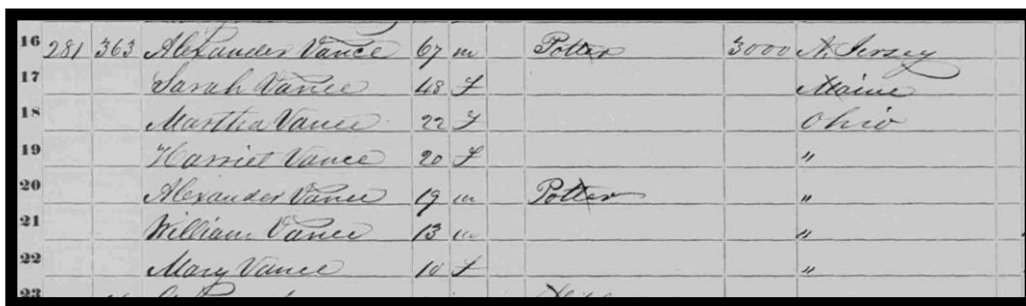 16 281 363 Alexander Vance 67 m Potter 3000 N. Jersey
17 Sarah Vance 48 F Maine
18 Martha Vance 22 F Ohio
19 Harriet Vance 20 F "
20 Alexander Vance 19 m Potter "
21 William Vance 13 m "
22 Mary Vance 10 F "
23